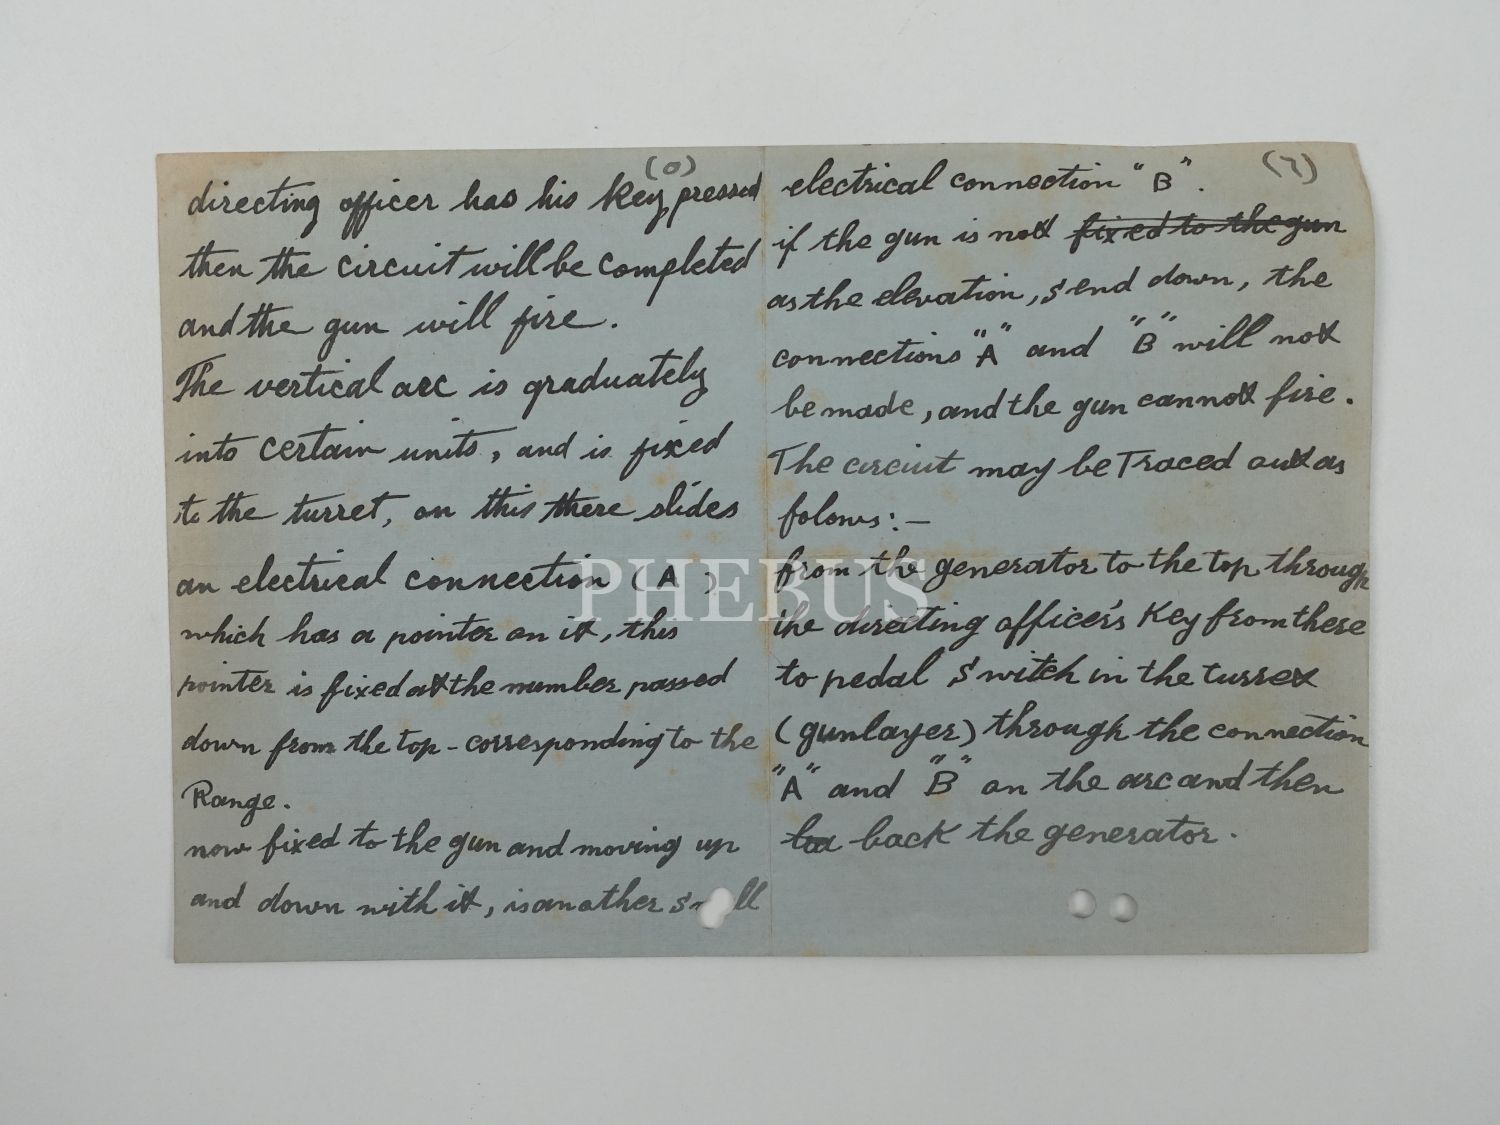 (0)
directing officer has his key pressed
then the circuit will be completed
and the gun will fire.
The vertical arc is graduately
into certain units, and is fixed
to the turret, on this there slides
an electrical connection (A)
which has a pointer on it, this
pointer is fixed at the number passed
down from the top - corresponding to the
Range.
now fixed to the gun and moving up
and down with it, is another small
(7)
electrical connection "B".
if the gun is not fixed to the gun
as the elevation, send down, the
connections "A" and "B" will not
be made, and the gun cannot fire.
The circiut may be Traced out as
folows:-
from the generator to the top through
the directing officer's Key from there
to pedal switch in the turret
(gunlayer) through the connection
"A" and "B" on the arc and then
back the generator.
PHEBUS